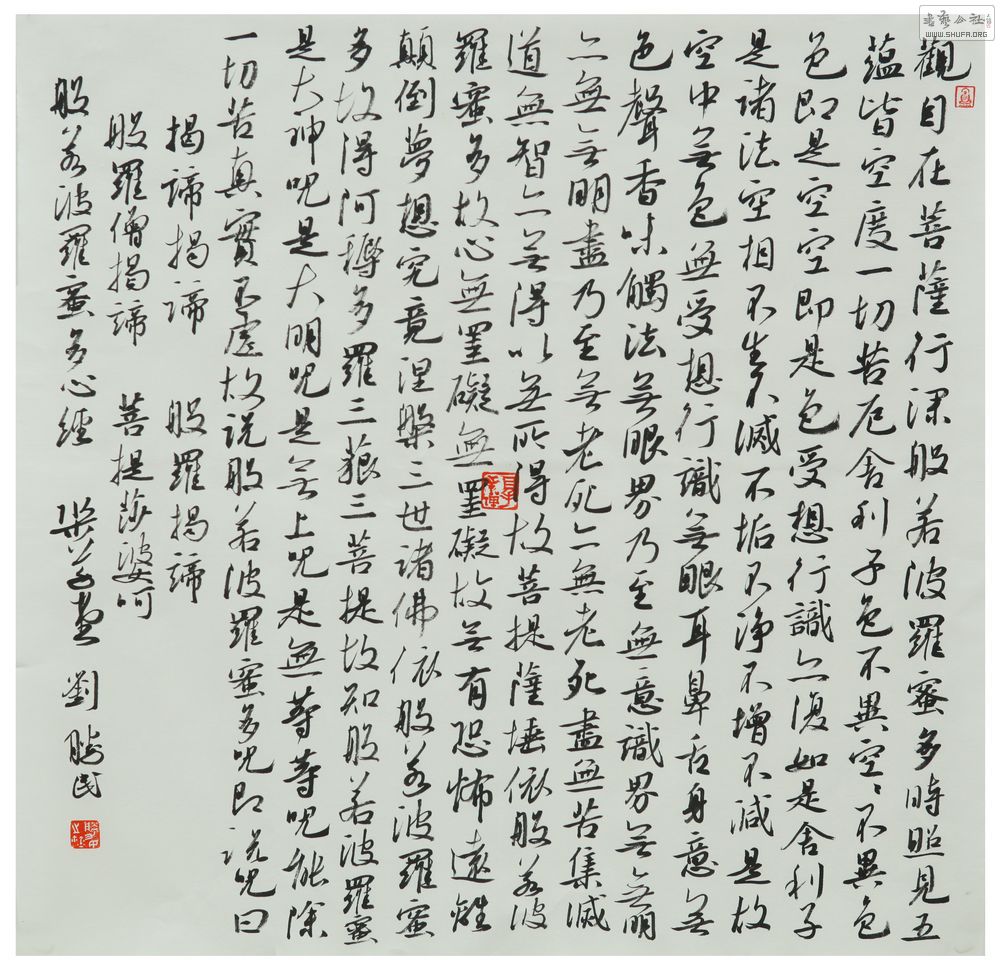 觀自在菩薩行深般若波羅蜜多時照見五
蘊皆空度一切苦厄舍利子色不異空〻不異色
色即是空空即是色受想行識亦復如是舍利子
是諸法空相不生不滅不垢不淨不增不減是故
空中無色無受想行識無眼耳鼻舌身意無
色聲香味觸法無眼界乃至無意識界無無明
亦無無明盡乃至無老死亦無老死盡無苦集滅
道無智亦無得以無所得故菩提薩埵依般若波
羅蜜多故心無罣礙無罣礙故無有恐怖遠離
顛倒夢想究竟涅槃三世諸佛依般若波羅蜜
多故得阿耨多羅三藐三菩提故知般若波羅蜜
是大神咒是大明咒是無上咒是無等等咒能除
一切苦真實不虛故說般若波羅蜜多咒即說咒曰
揭諦揭諦 般羅揭諦
般羅僧揭諦 菩提莎婆呵
般若波羅蜜多心經 劉勝民
書藝公社
WWW.SHUFA.ORG